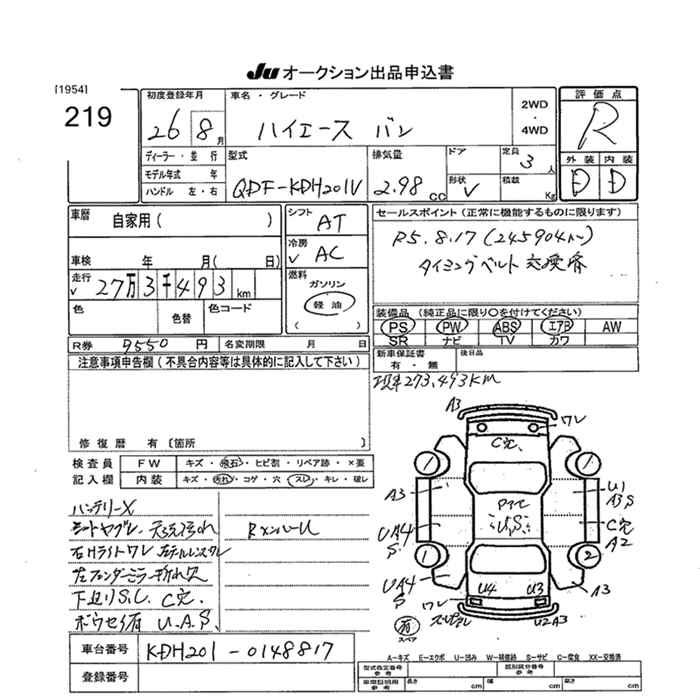 Ju オークション出品申込書
[1954]
219
初度登録年月
26 8月
車名・グレード
ハイエース バン
2WD
・
4WD
評価点
R
ディーラー・並行
モデル年式 年
ハンドル 左・右
型式
QDF-KDH201V
排気量
2.98 CC
ドア
形状
V
定員
3 人
積載
Kg
外装 内装
D D
車歴
自家用( )
シフト
AT
冷房
V AC
セールスポイント(正常に機能するものに限ります)
R5.8.17(245904km)
タイミングベルト交換済
車検 年 月( 日)
走行
V 27万3千493km
燃料
ガソリン
軽油
( )
色 色替 色コード
装備品(純正品に限り○を付けてください)
PS PW ABS エアB AW
SR ナビ TV カワ
R券 9550円 名変期限 月 日
新車保証書
有・無
後日品
注意事項申告欄(不具合内容等は具体的に記入して下さい)
現車273,493KM
修復歴 有〔箇所 〕
検査員
記入欄
FW キズ・飛石・ヒビ割・リペア跡・×要
内装 キズ・汚れ・コゲ・穴・スレ・キレ・破レ
バッテリーX
シートヤブレ.
右Hライトワレ
下廻りS.C. C穴
U.A.S
RメンバーU
A3
ワレ
C穴
1 1
A3
U1
A3 S
UA4
S
C穴
A2
U.S.
1 2
UA4
S
U4 U3
A3
ワレ
U2A3
有
スペア
A-キズ E-エクボ U-凹み W-補修跡 S-サビ C-腐食 XX-交換済
車台番号
KDH201-0148817
登録番号
型式指定番号
類別区分番号
車庫証明用参考
長さ cm 幅 cm 高さ cm